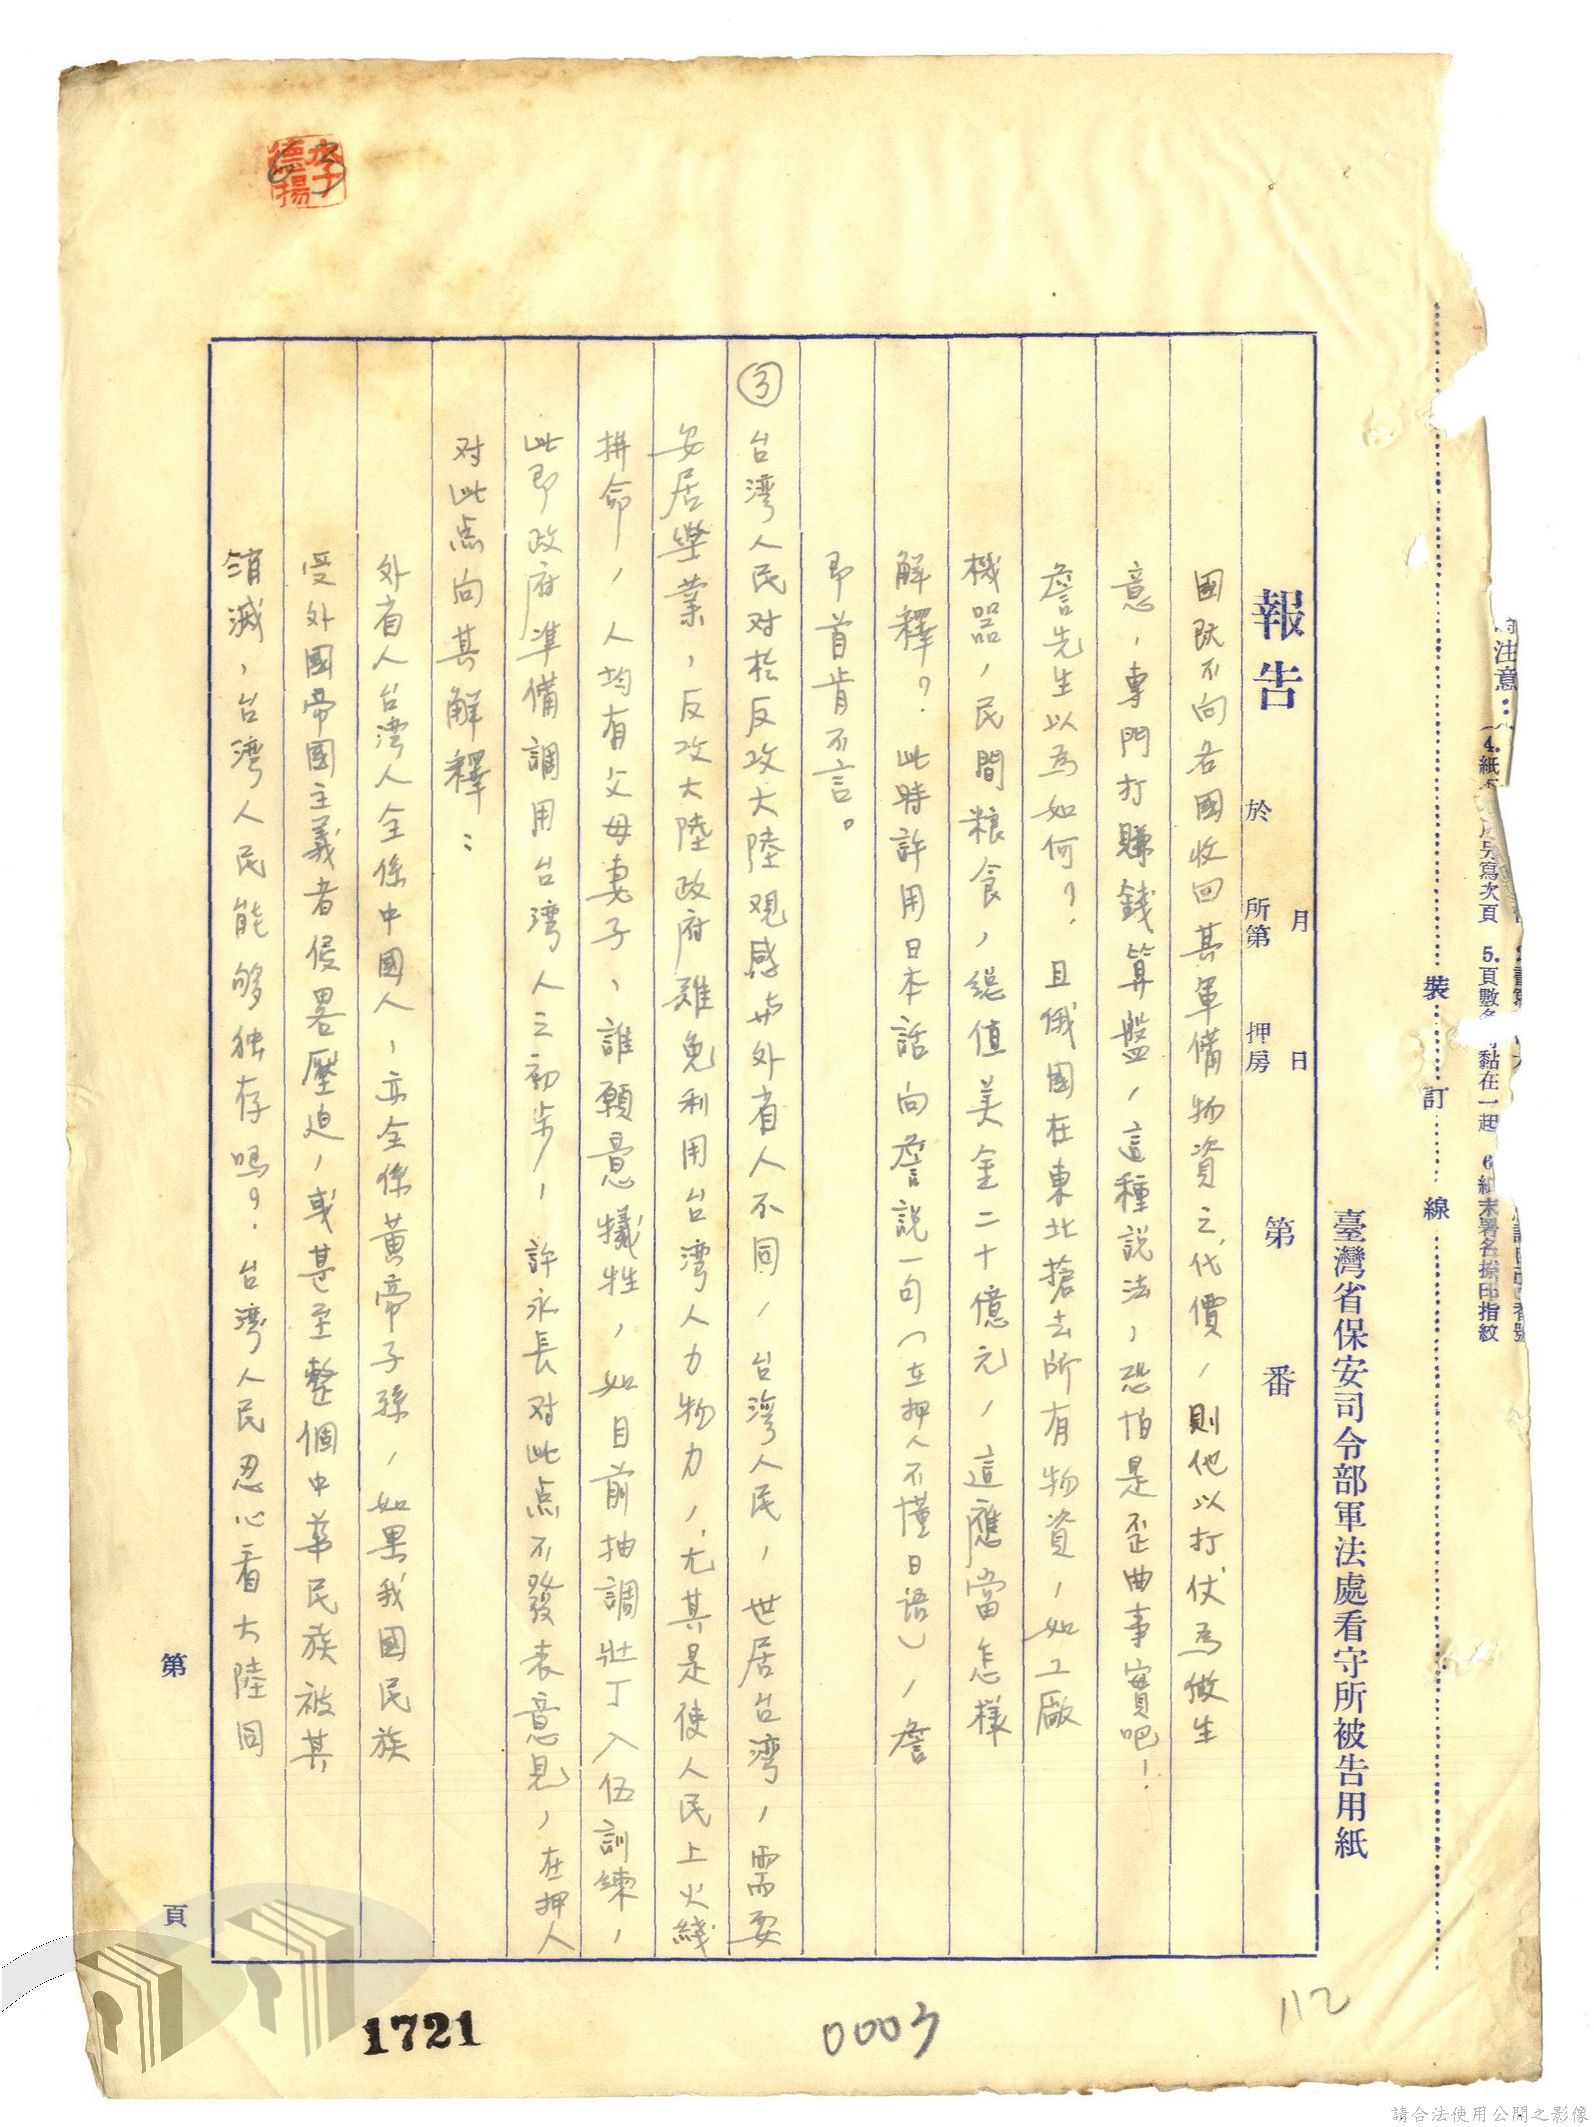 注意：
4.紙
寫次頁
5.頁數
黏在一起
6
紙末署名捺印指紋
裝訂線
臺灣省保安司令部軍法處看守所被告用紙
報告
月 日
於 所第 押房
第 番
國既不向各國收回其軍備物資之代價，則他以打仗為做生
意，專門打賺錢算盤，這種說法，恐怕是歪曲事實吧！
詹先生以為如何？且俄國在東北搶去所有物資，如工廠
機器，民間粮食，總值美金二十億元，這應當怎樣
解釋？此時許用日本話向詹說一句（在押人不懂日语），詹
即首肯不言。
③台湾人民对於反攻大陸观感与外省人不同，台湾人民，世居台湾，需要
安居樂業，反攻大陸政府难免利用台湾人力物力，尤其是使人民上火线
拼命，人均有父母妻子、誰願意犧牲，如目前抽調壯丁入伍訓練，
此即政府準備調用台湾人之初步，許永長对此点不發表意見，在押人
对此点向其解釋：
外省人台湾人全係中國人，亦全係黃帝子孫，如果我國民族
受外國帝國主義者侵畧壓迫，或甚至整個中華民族被其
消滅，台湾人民能够独存嗎？台湾人民忍心看大陸同
第 頁
李德揚
63
112
0003
1721
請合法使用公開之影像